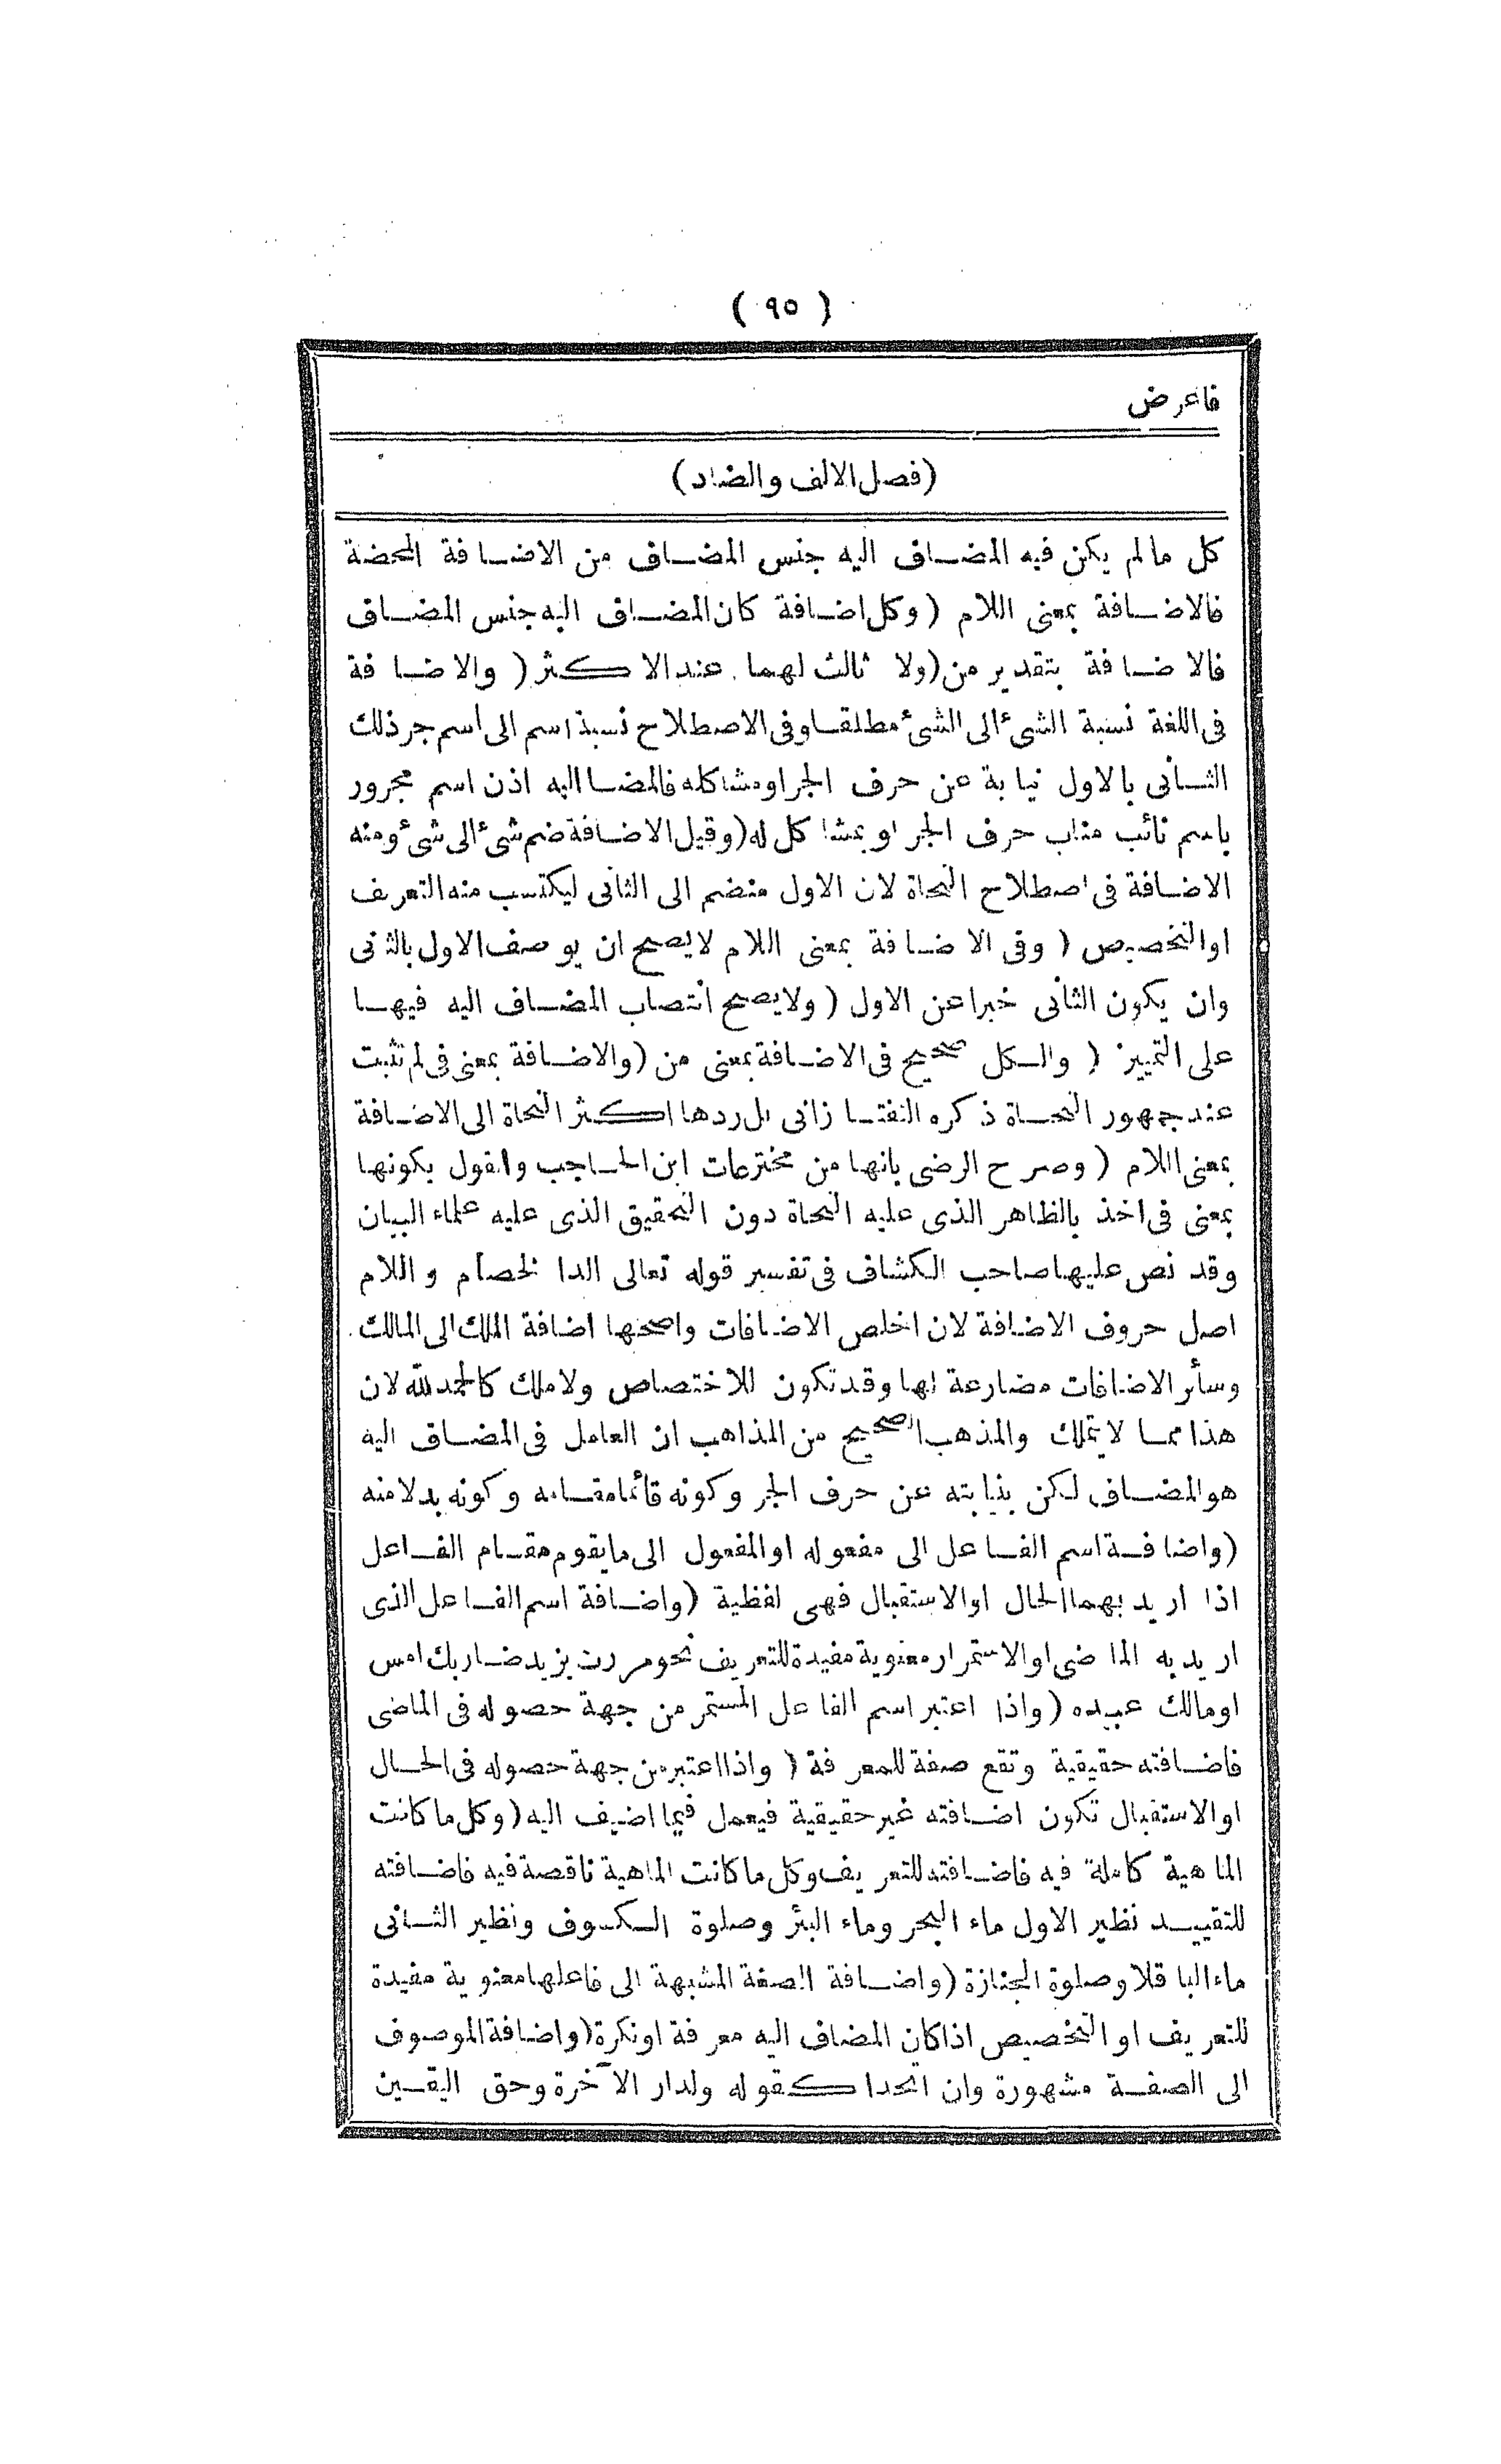 ( ٩٥ )
فاعرض
(فصل الالف والضاد)
كل مالم يكن فيه المضاف اليه جنس المضاف من الاضافة المحضة
فالاضافة بمعنى اللام (وكل اضافة كان المضاف اليه جنس المضاف
فالاضافة بتقدير من (ولا ثالث لهما عند الاكثر (والاضافة
فى اللغة نسبة الشئ الى الشئ مطلقا وفى الاصطلاح نسبة اسم الى اسم جر ذلك
الثانى بالاول نيابة عن حرف الجر او مشاكله فالمضا اليه اذن اسم مجرور
باسم نائب مناب حرف الجر او بمشاكل له (وقيل الاضافة ضم شئ الى شئ ومنه
الاضافة فى اصطلاح النحاة لان الاول منضم الى الثانى ليكتسب منه التعريف
او التخصيص (وفى الاضافة بمعنى اللام لا يصح ان يوصف الاول بالثنى
وان يكون الثانى خبرا عن الاول (ولا يصح انتصاب المضاف اليه فيها
على التمييز (والكل صحيح فى الاضافة بمعنى من (والاضافة بمعنى فى لم تثبت
عند جمهور النحاة ذكره التفتازانى بل ردها اكثر النحاة الى الاضافة
بمعنى اللام (وصرح الرضى بانها من مخترعات ابن الحاجب والقول بكونها
بمعنى فى اخذ بالظاهر الذى عليه النحاة دون التحقيق الذى عليه علماء البيان
وقد نص عليها صاحب الكشاف فى تفسير قوله تعالى الدا لخصام واللام
اصل حروف الاضافة لان اخلص الاضافات واصحها اضافة الملك الى المالك
وسائر الاضافات مضارعة لها وقد تكون للاختصاص ولا ملك كالحمد لله لان
هذا مما لا يتملك والمذهب الصحيح من المذاهب ان العامل فى المضاف اليه
هو المضاف لكن بنيابته عن حرف الجر وكونه قائما مقامه وكونه بدلا منه
(واضافة اسم الفاعل الى مفعوله او المفعول الى ما يقوم مقام الفاعل
اذا اريد بهما الحال او الاستقبال فهى لفظية (واضافة اسم الفاعل الذى
اريد به الماضى او الاستمرار معنوية مفيدة للتعريف نحو مررت بزيد ضاربك امس
او مالك عبيده (واذا اعتبر اسم الفاعل المستمر من جهة حصوله فى الماضى
فاضافته حقيقية وتقع صفة للمعرفة (واذا اعتبر من جهة حصوله فى الحال
او الاستقبال تكون اضافته غير حقيقية فيعمل فيما اضيف اليه (وكل ما كانت
الماهية كاملة فيه فاضافته للتعريف وكل ما كانت الماهية ناقصة فيه فاضافته
للتقييد نظير الاول ماء البحر وماء البئر وصلوة الكسوف ونظير الثانى
ماء الباقلا وصلوة الجنازة (واضافة الصفة المشبهة الى فاعلها معنوية مفيدة
للتعريف او التخصيص اذا كان المضاف اليه معرفة او نكرة (واضافة الموصوف
الى الصفة مشهورة وان اتحدا كقوله ولدار الآخرة وحق اليقين